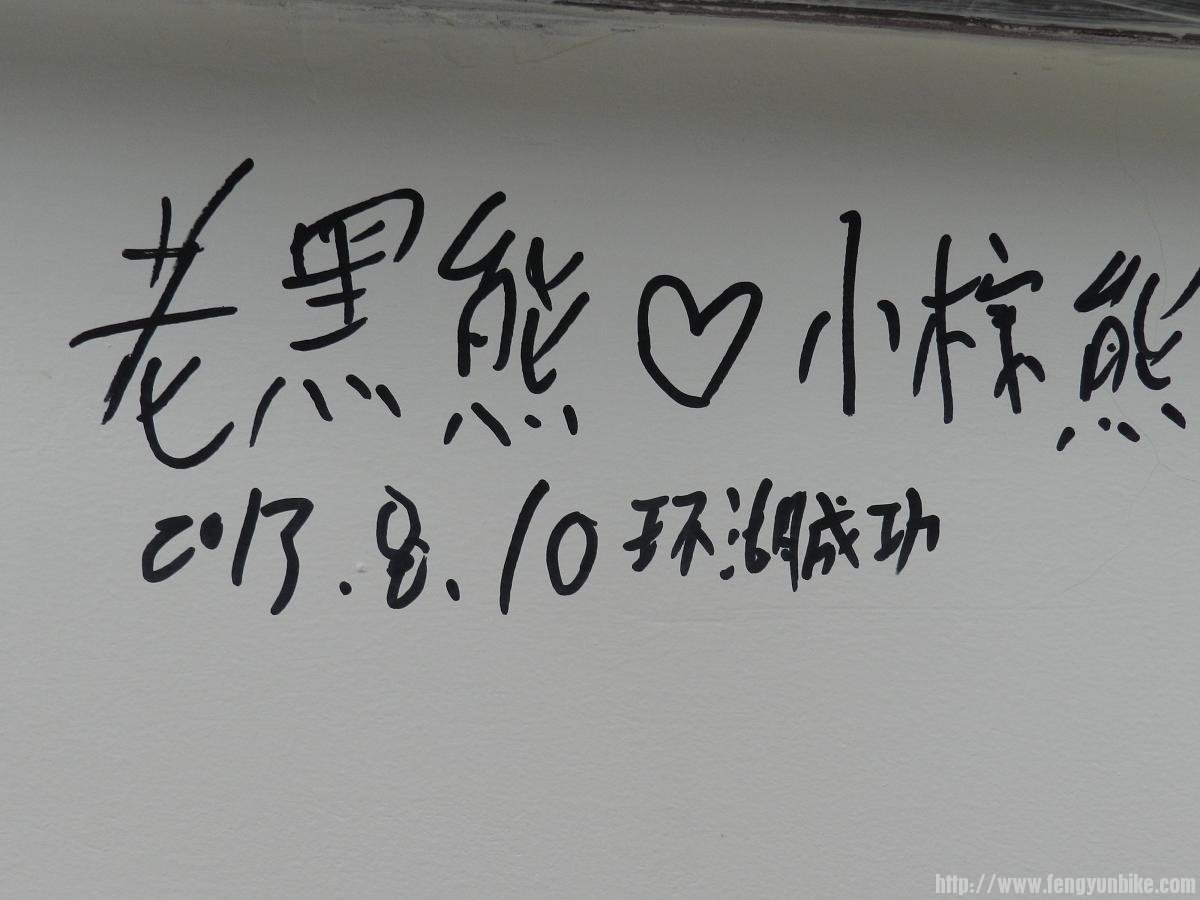 老黑熊♡小棕熊
2013.8.10环湖成功
http://www.fengyunbike.com